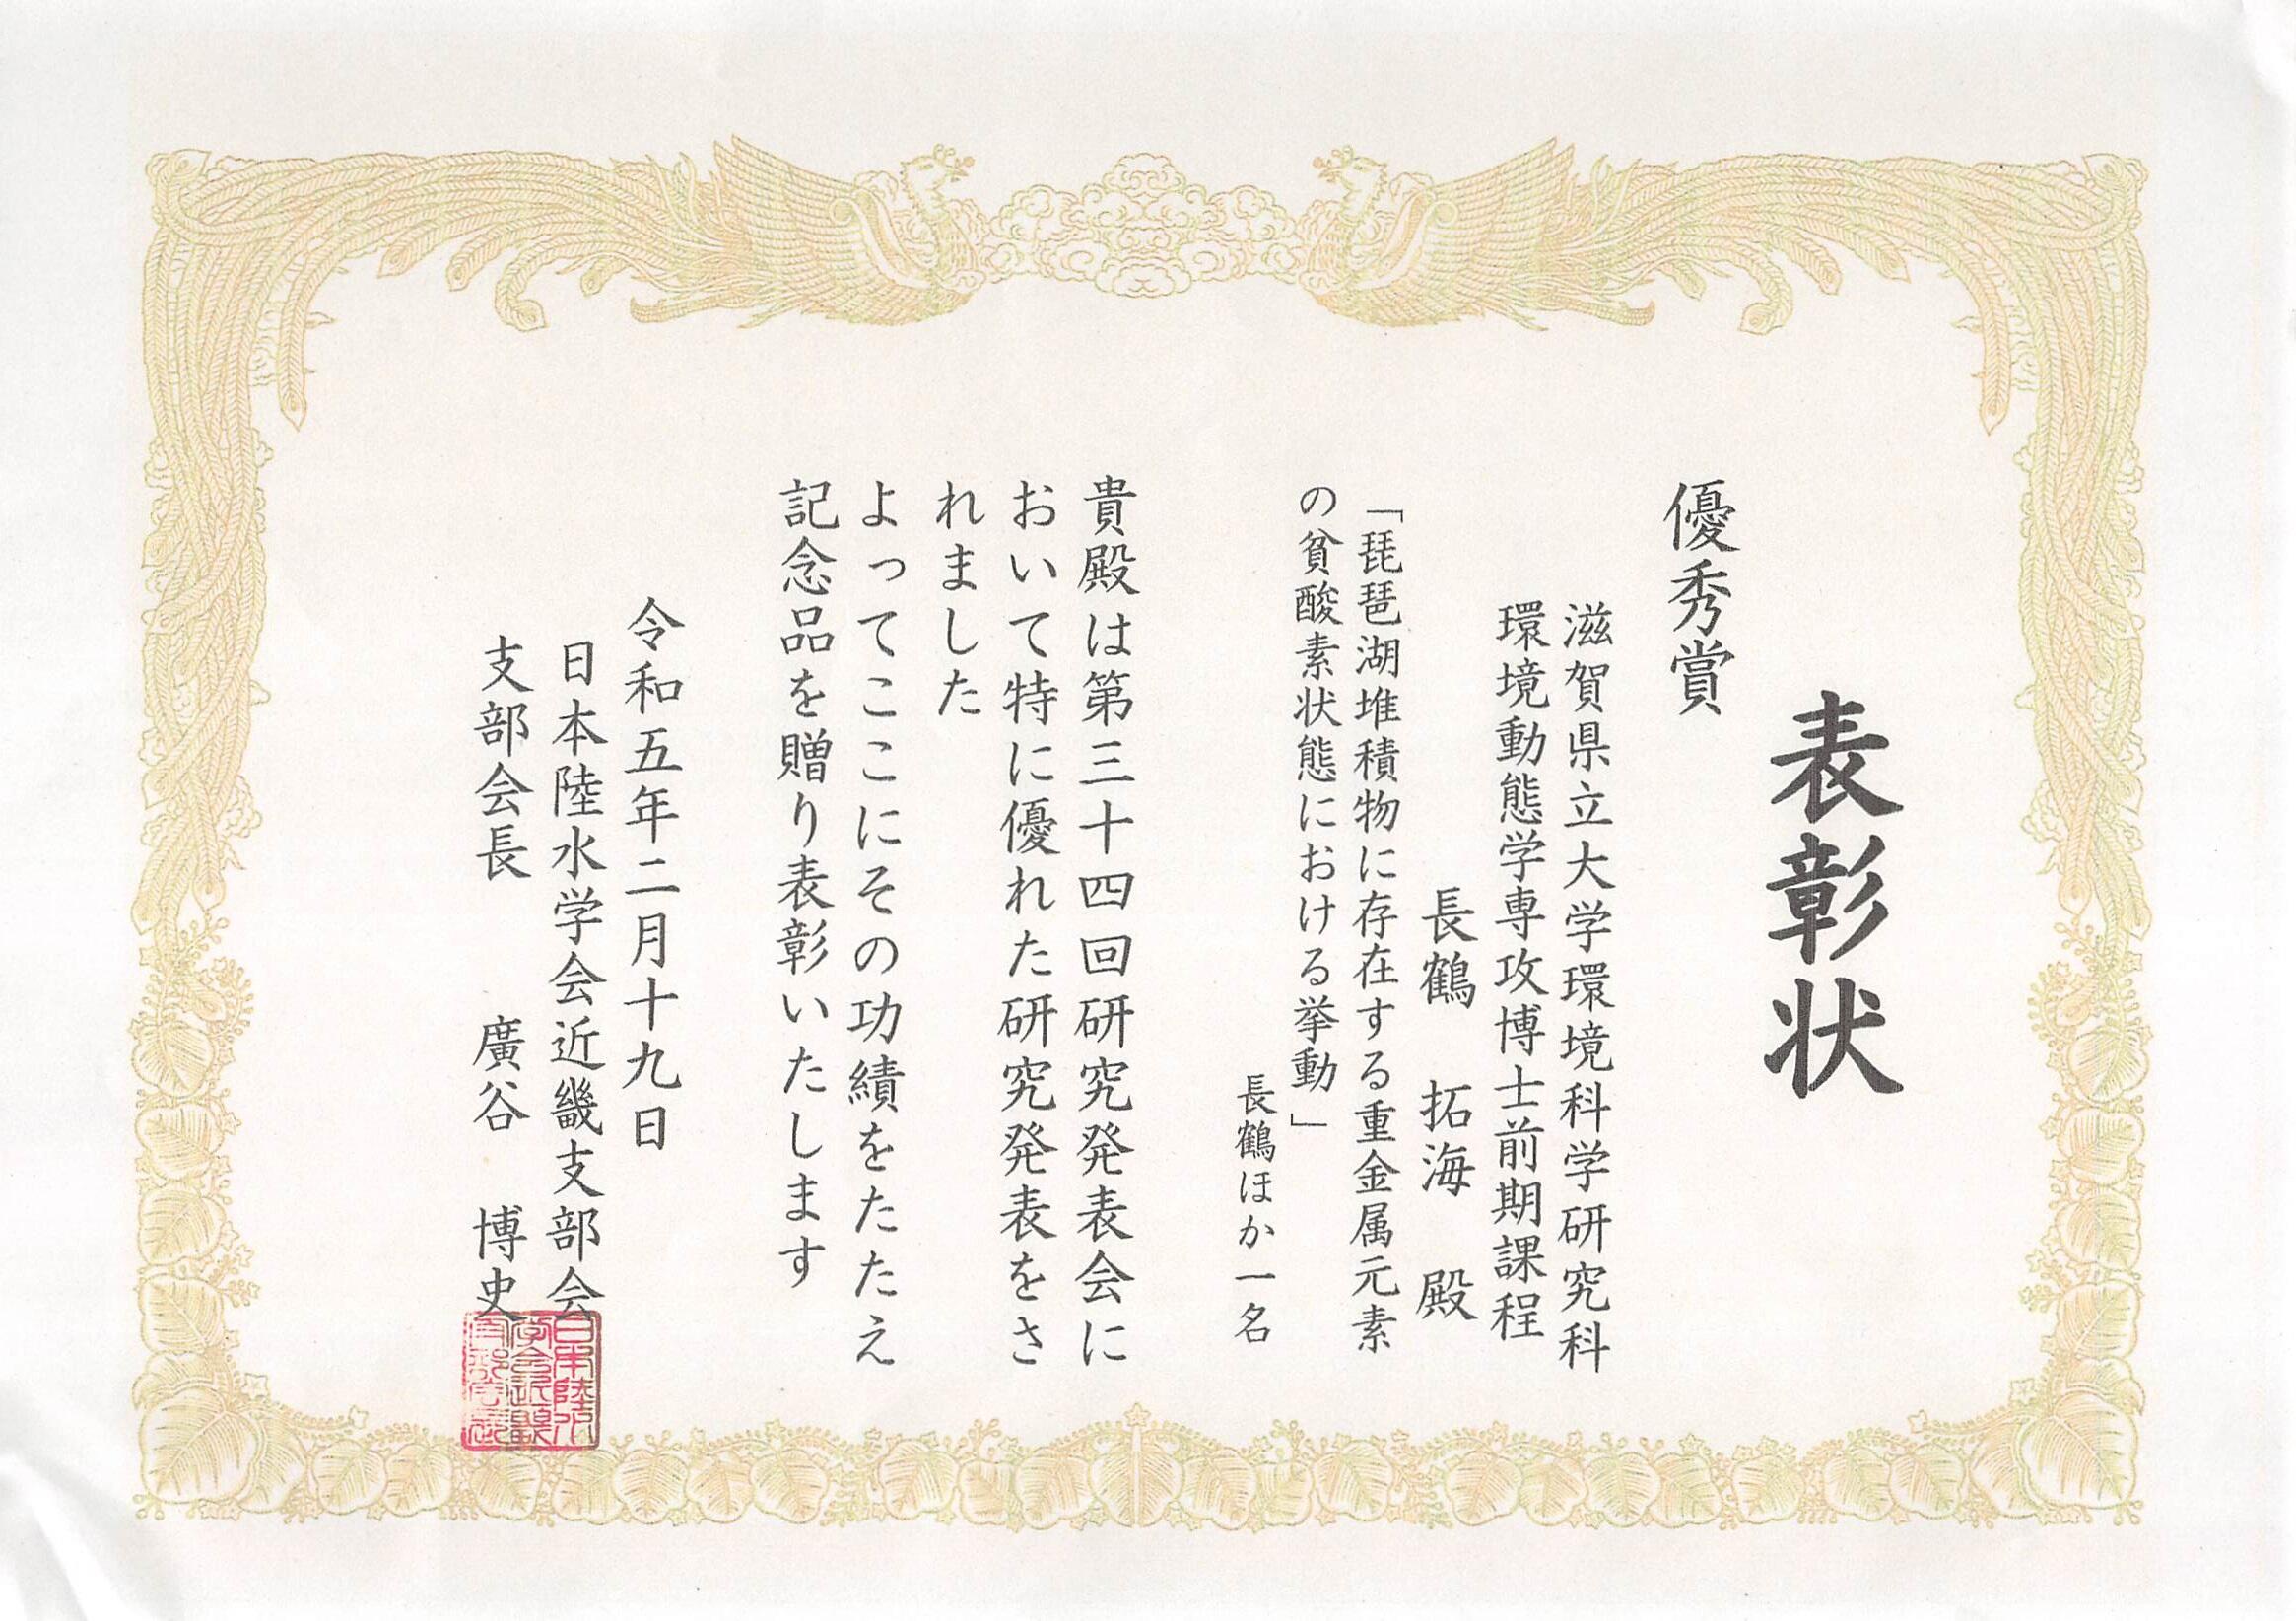 表彰状
優秀賞
滋賀県立大学環境科学研究科
環境動態学専攻博士前期課程
長鶴 拓海 殿
「琵琶湖堆積物に存在する重金属元素
の貧酸素状態における挙動」
長鶴ほか一名
貴殿は第三十四回研究発表会に
おいて特に優れた研究発表をさ
れました
よってここにその功績をたたえ
記念品を贈り表彰いたします
令和五年二月十九日
日本陸水学会近畿支部会
支部会長 廣谷 博史